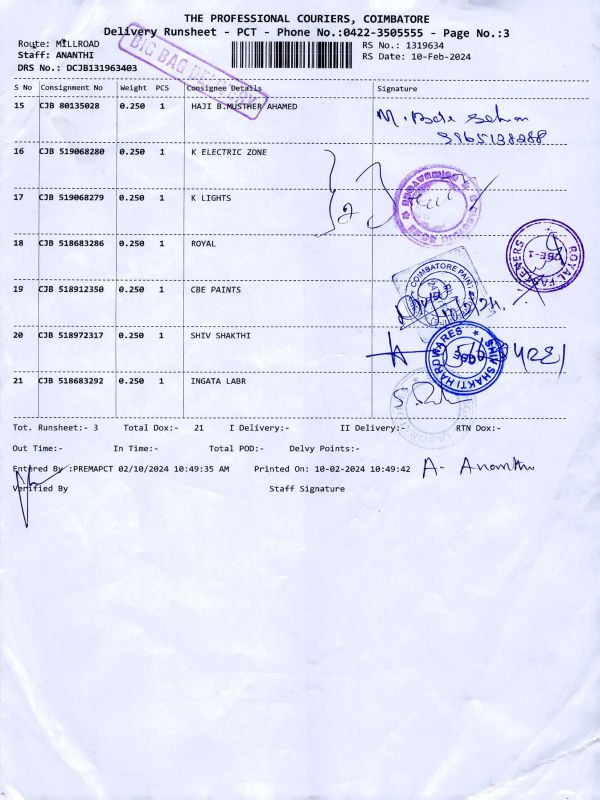 THE PROFESSIONAL COURIERS, COIMBATORE
Delivery Runsheet - PCT - Phone No.:0422-3505555 - Page No.:3
Route: MILLROAD
RS No.: 1319634
Staff: ANANTHI
RS Date: 10-Feb-2024
DRS No.: DCJB131963403
BIG BAG DELIVERY
S No Consignment No Weight PCS Consignee Details Signature
15 CJB 80135028 0.250 1 HAJI B.MUSTHER AHAMED
16 CJB 519068280 0.250 1 K ELECTRIC ZONE
17 CJB 519068279 0.250 1 K LIGHTS
2
18 CJB 518683286 0.250 1 ROYAL
ROYAL FASTENERS
CBE-1
19 CJB 518912350 0.250 1 CBE PAINTS
COIMBATORE PAINT
20 CJB 518972317 0.250 1 SHIV SHAKTHI
SHIV SHAKTI HARDWARES
CBE
21 CJB 518683292 0.250 1 INGATA LABR
Tot. Runsheet:- 3 Total Dox:- 21 I Delivery:- II Delivery:- RTN Dox:-
Out Time:- In Time:- Total POD:- Delvy Points:-
Entered By :PREMAPCT 02/10/2024 10:49:35 AM Printed On: 10-02-2024 10:49:42
A. Ananthi
Verified By Staff Signature